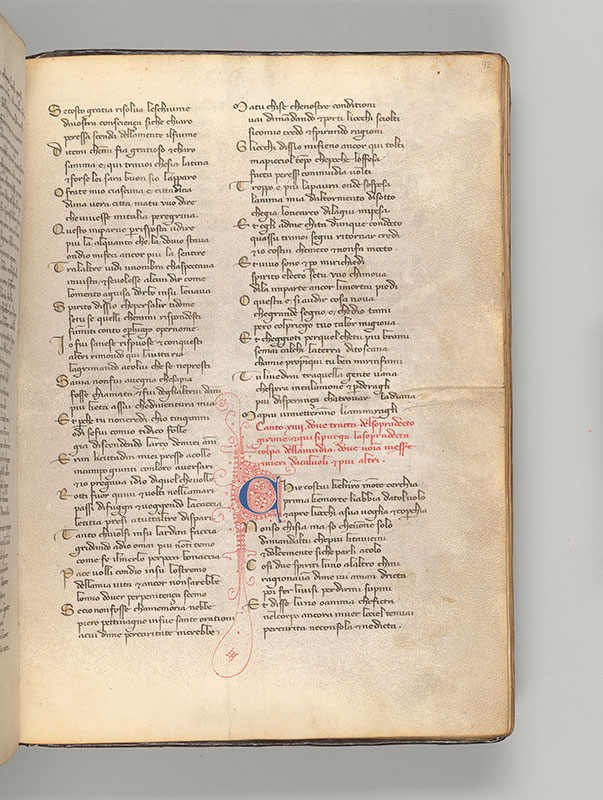 92
Se tosto gratia risolva leschiume
divostra conscienza siche chiaro
peressa scenda dellamente ilfiume
Ditemi chemi fia gratioso & charo
sanima e qui travoi chesia latina
& forse lei sara buon sio lapparo
O frate mio ciascuna e cittadina
duna vera citta matu vuo dire
chevivesse initalia peregrina.
Questo miparve p risposta udire
piu la alquanto che la dovio stava
ondio mifeci ancor piu la sentire
Tralaltre vidi unombra chaspectava
invista & sevolesse alcun dir come
lomento aguisa dorbo insu levava
Spirito dissio chepersalir tidome
setu se quelli chemmi rispondesti
fammiti conto o pluogo opernome
Io fui sanese rispuose & conquesti
altri rimondo qui lavita ria
lagrimando acolui che se nepresti
Savia nonfui avegna che sapia
fosse chiamata & fui deglialtrui danni
piu lieta assai che diventura mia
Et pche tu noncredi chio tinganni
odi sefui comio tidico folle
gia discendendo larco demiei anni
Eran licittadin miei presso acolle
incampo giunti conloro aversari
& io pregava idio diquel chevolle
Rotti fuor quivi & volti nelliamari
passi difugga & veggendo lacaccia
letitia presi atuttaltre dispari
Tanto chivolsi insu lardita faccia
gridando adio omai piu noti temo
come fe ilmerlo perpoca bonaccia
Pace volli condio insu lostremo
dellamia vita & ancor nonsarebbe
lomio dover perpenitenza scemo
Secio nonfosse chamemoria nebbe
piero pettinagno insue sante orationi
acui dime percaritate increbbe
Matu chise chenostre conditioni
vai dimandando & porti liocchi sciolti
sicomio credo & spirando ragioni
Gliocchi dissio mifieno ancor qui tolti
mapicciol tempo chepoche loffesa
facta peresser conmvidia volti
Troppo e piu lapaura onde sospesa
lanima mia deltormento disotto
chegia loncarco dilagiu mipesa.
Et egli adme chita dunque condocto
quassu tranoi segiu ritornar credi
& io costui chemeco & nonfa motto
Et vivo sono & po mirichiedi
spirito electo setu vuo chimova
dila imparte ancor limortai piedi
O questa e si audir cosa nova
chegrande segno e chedio tami
pero colpriego tuo talor migiova
Et cheggioti perquel chetu piu brami
semai calchi laterra di toscana
chamie propinqui tu ben mirinfami
Tu livedrai traquella gente vana
chespera intalamone & perderagli
piu disperanza chatrovar ladiana
Mapiu vimetteranno liammiragli
Canto xiiii. dove tracta delsopradecto
girone & qui sipurga lasopradecta
colpa dellainvidia. dove nota messer
rinieri dacalvoli & piu altri.
Chie costui chelnro monte cerchia
prima chemorte liabbia datoilvolo
& apre liocchi asua voglia & coverchia
Nonso chisia ma so chenone solo
dimandaltu chepiu litavicini
& dolcemente siche parli acolo
Cosi due spiriti luno alaltro chini
ragionavan dime ivi aman dricta
poi fer livisi perdirmi supini
Et disse luno oanima chefictа
nelcorpo ancora inver lociel tenvai
percarita neconsola & nedicta.